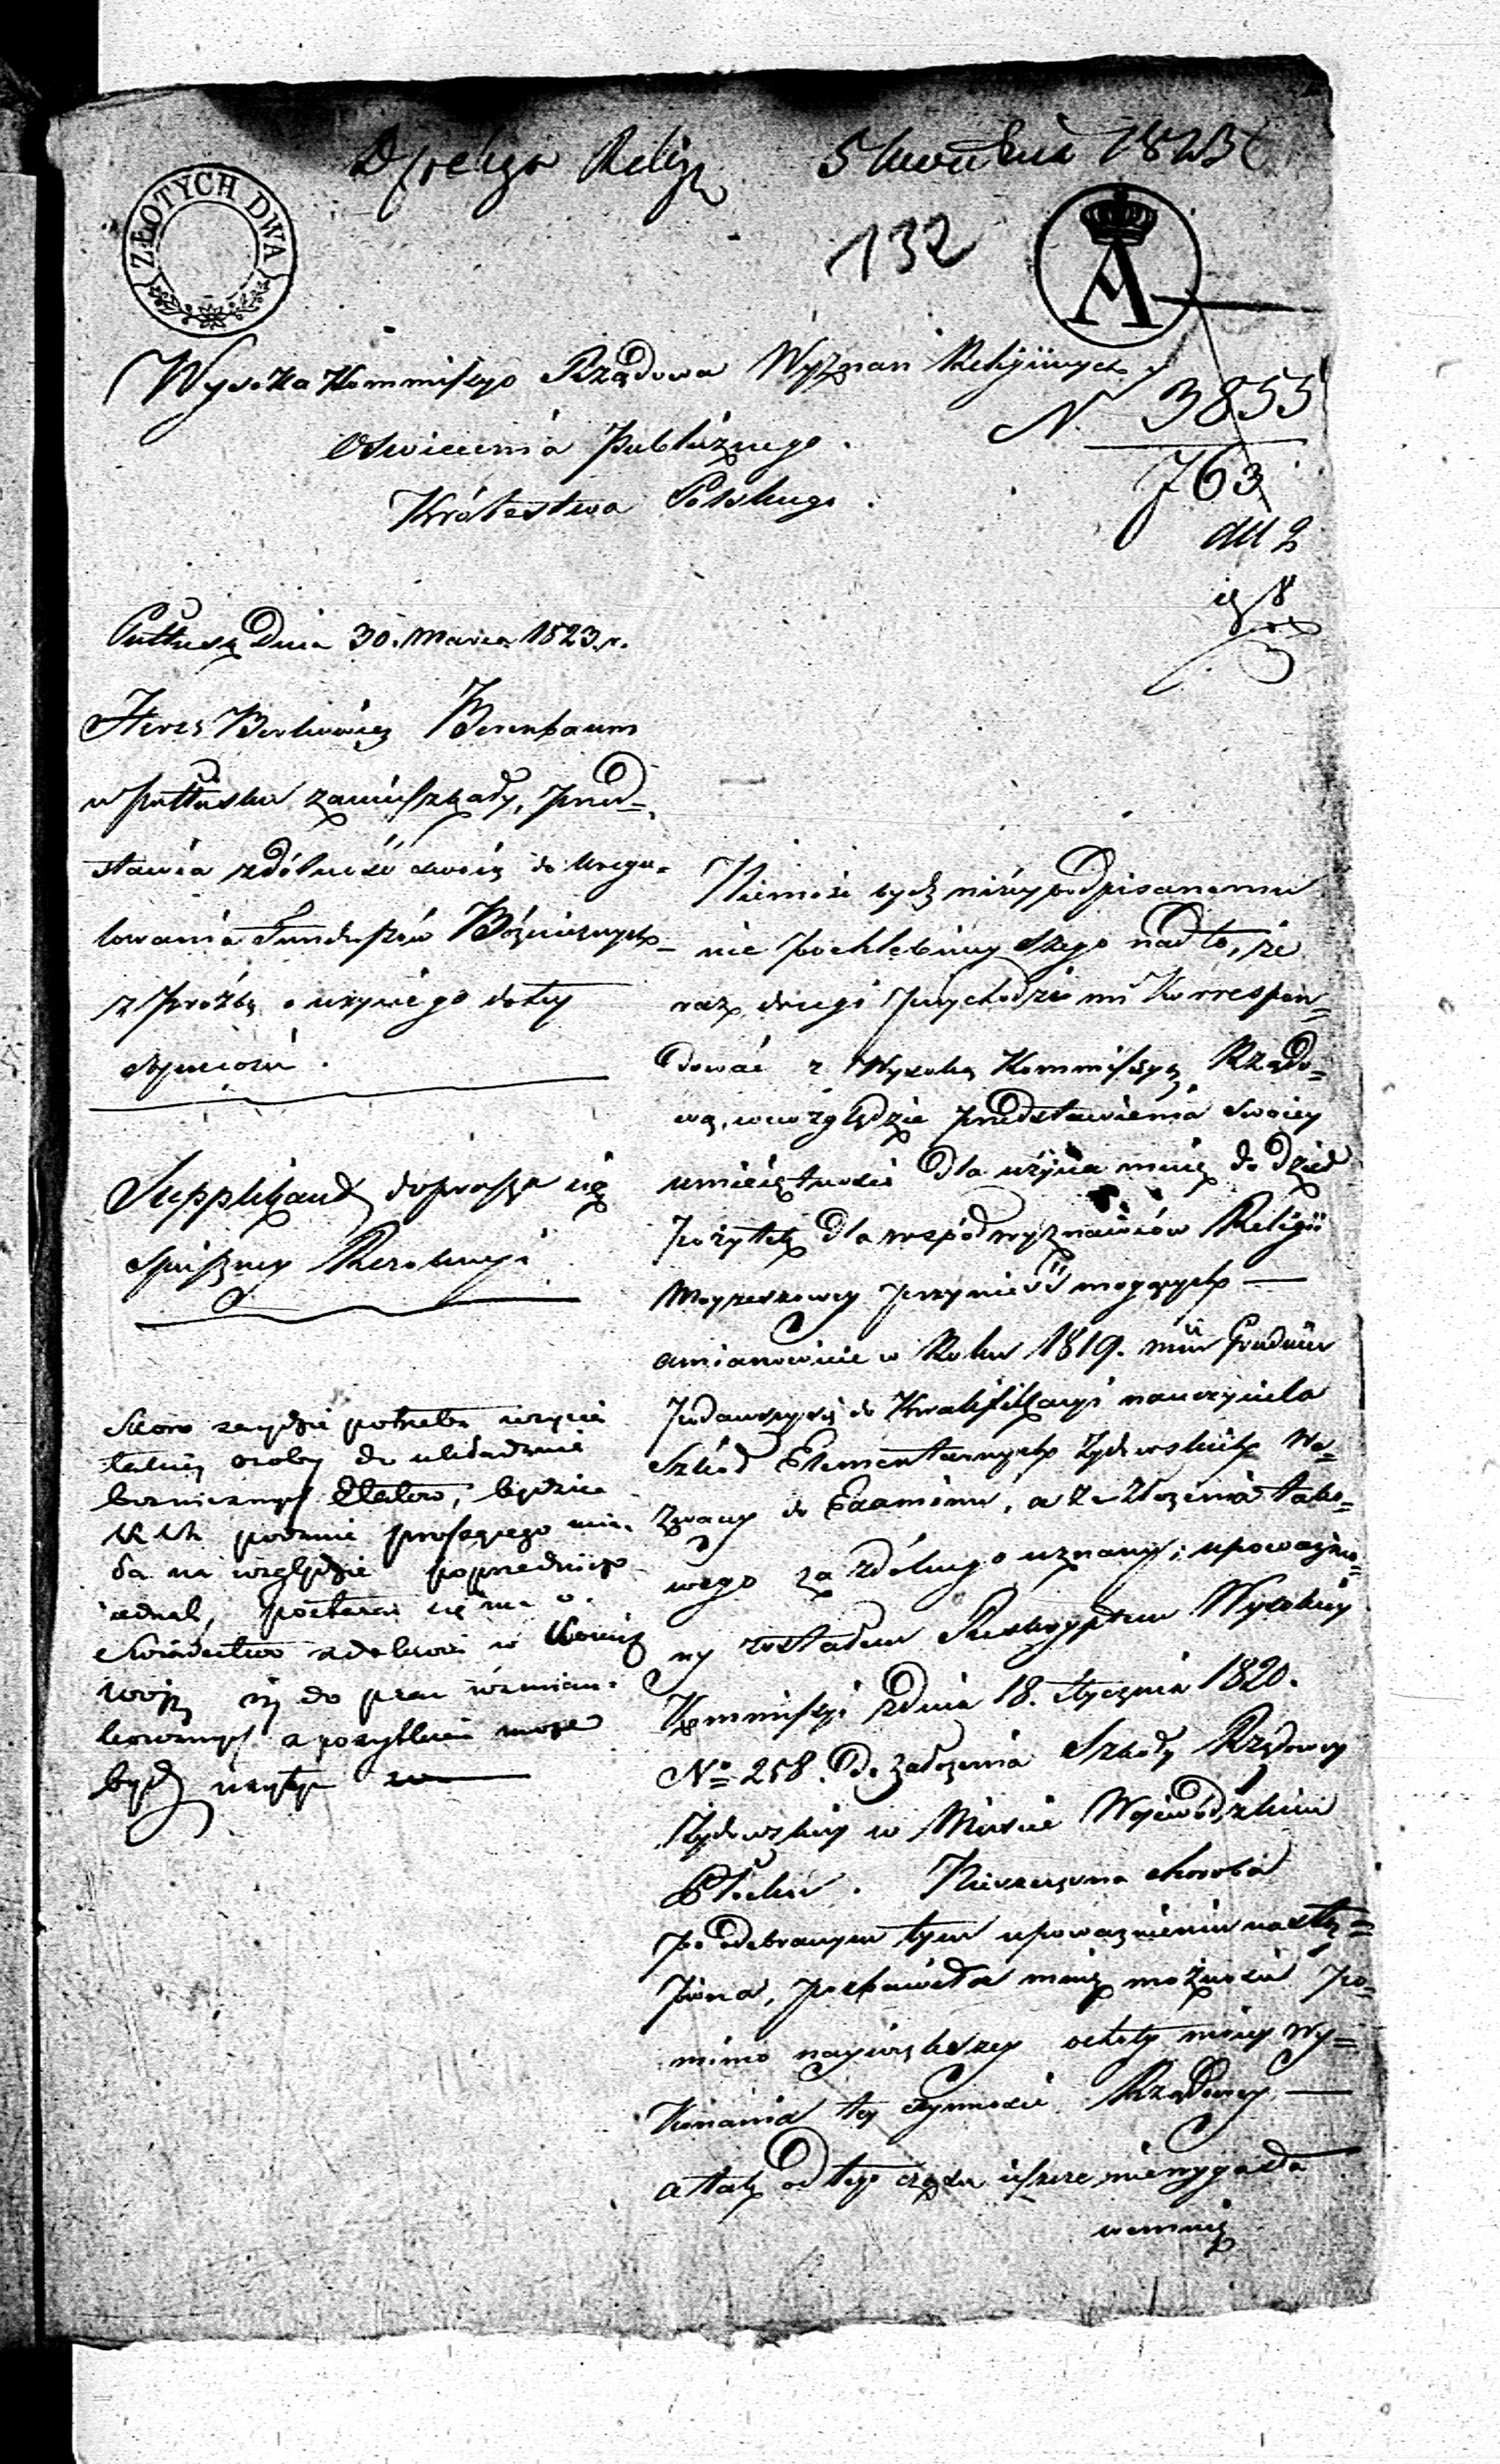 Dyrekcya Relig. 5 Kwietnia 1823
132
ZŁOTYCH DWA
A
Wysoka Kommissyo Rządowa Wyznań Religiinych y
Oswiecenia Publicznego.
Królestwa Polskiego.
N 3855
763
Pułtusk Dnia 30. Marca 1823. r.
Hersz Berkowicz Berenbaum
w Pułtusku zamieszkały, przed=
stawia zdólność swoią do uregu=
lowania Funduszów Bóżnicznych
z prozbą o użycie go do tey
czynności.
Supplikant doprasza się
spieszney Rezolucyi
Skoro zaydzie potrzeba użycia
takiey osoby do układania
bożnicznych Etatów, będzie
podanie proszącego mia-
ła na względzie poprzedniczo
jednak, postara się on o
Swiadectwo zdolności w
się do prac
a pozytkiem może
bydź użyty
Niemoże bydź niżey podpisanemu
nic pochlebnieyszego nad to, że
raz drugi przychodzi mi Korrespon=
dować z Wysoką Kommissyą Rządo=
wą, wewzględzie przedstawienia swoiey
umieiętności dla użycia mnie do dzieł
pożytek dla wspólwyznawców Religii
Moyżeszowey przynieść mogących —
amianowicie w Roku 1819. mca Grudnia
podawszy się do Kwalifikacyi nauczyciela
Szkół Elementarnych Żydowskich We=
zwany do Examinu, a ze złożenia tako=
wego za zdólnego uznany i upoważnio=
ny zostałem Reskryptem Wysokiey
Kommissyi zdnia 18. Stycznia 1820.
No 258. do założenia Szkoły Rządowey
Żydowskiey w Miescie Wojewódzkim
Płocku. Nieszczęsna choroba
po odebranym tym upoważnieniu nastą=
piona, pozbawiła mnie możności po=
mimo naywiększey ochoty moiey wy=
konania tey czynności Rządowey, —
a tak od tego czasu ieszcze niewygasła
wemnie